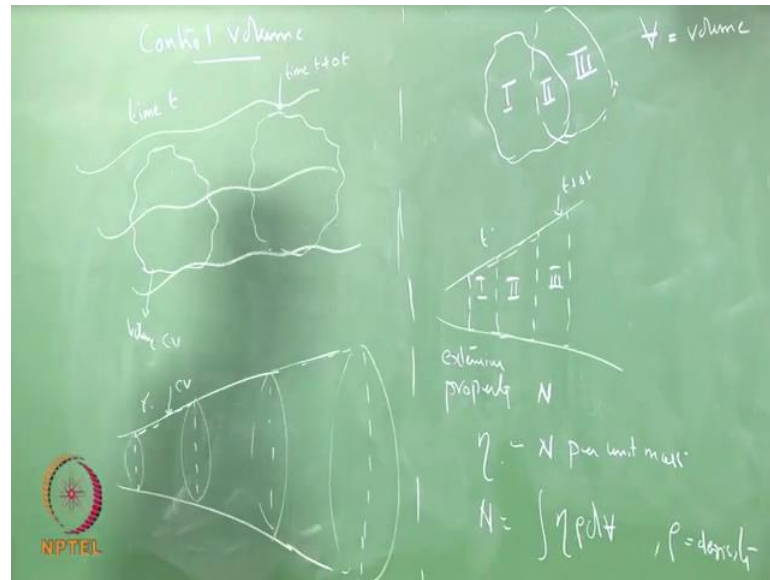 Control Volume
time t
time t+Δt
Volume CV
CV
I II III
V = volume
t
t+Δt
I II III
extensive
property N
η - N per unit mass
N = ∫ηρdV , ρ = density
NPTEL